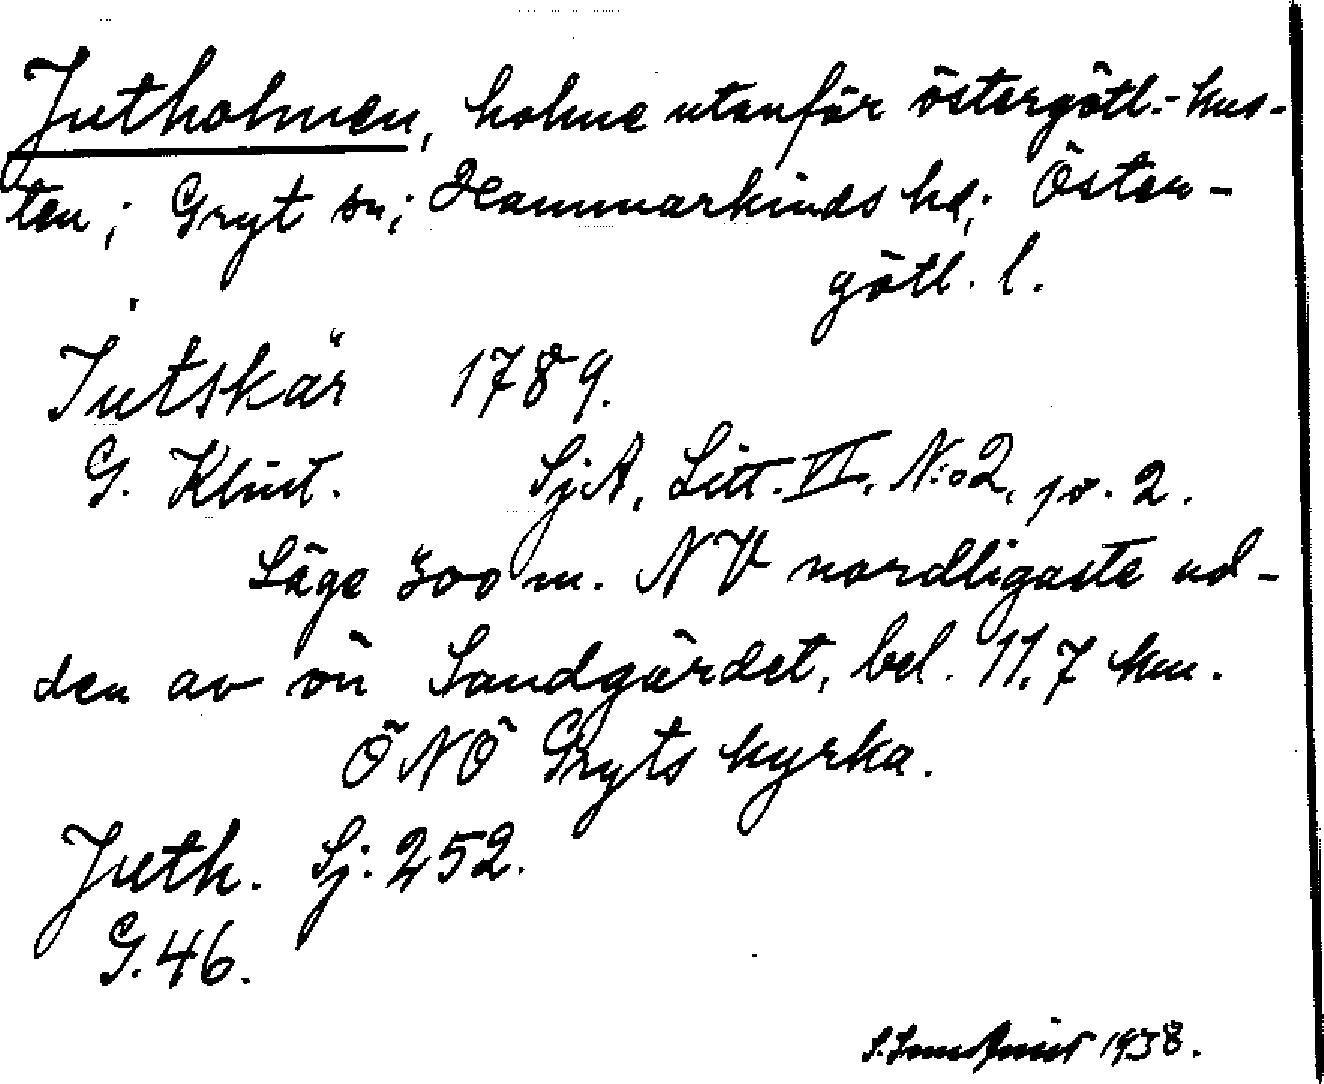 Jutholmen, holme utanför östergötl.-kus-
ten; Gryt sn; Hammarkinds hd; Öster-
götl. l.
Jutskär 1789.
G. Klint. SjA, Litt. VI, N:o 2, p. 2.
Läge 300 m. NV nordligaste ud-
den av ön Sandgärdet, bel. 11,7 km.
ÖNÖ Gryts kyrka.
Juth. Sj. 252.
G. 46.
1938.